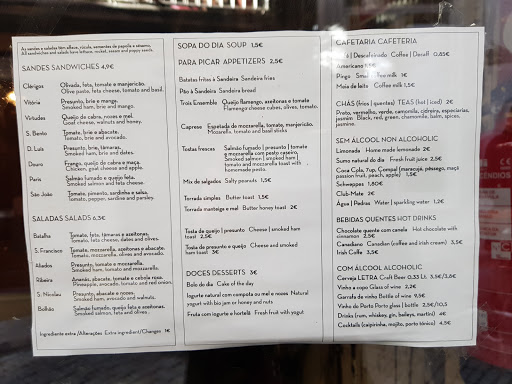 As sandes e saladas têm alface, rúcula, sementes de papoila e sésamo.
All sandwiches and salads have lettuce, rocket, sesam and poppy seeds.
SANDES SANDWICHES 4,9€
Clérigos Olivada, feta, tomate e manjericão.
Olive paste, feta cheese, tomato and basil.
Vitória Presunto, brie e manga.
Smoked ham, brie and mango.
Virtudes Queijo de cabra, nozes e mel.
Goat cheese, walnuts and honey.
S. Bento Tomate, brie e abacate.
Tomato, brie and avocado.
D. Luís Presunto, brie, tâmaras.
Smoked ham, brie and dates.
Douro Frango, queijo de cabra e maçã.
Chicken, goat cheese and apple.
Paris Salmão fumado e queijo feta.
Smoked salmon and feta cheese.
São João Tomate, pimento, sardinha e salsa.
Tomato, pepper, sardine and parsley.
SALADAS SALADS 6,5€
Batalha Tomate, feta, tâmaras e azeitonas.
Tomato, feta cheese, dates and olives.
S. Francisco Tomate, mozzarella, azeitonas e abacate.
Tomato, mozzarella, olives and avocado.
Aliados Presunto, tomate e mozzarella.
Smoked ham, tomato and mozzarella.
Ribeira Ananás, abacate, tomate e cebola roxa.
Pineapple, avocado, tomato and red onion.
S. Nicolau Presunto, abacate e nozes.
Smoked ham, avocado and walnuts.
Bolhão Salmão fumado, queijo feta e azeitonas.
Smoked salmon, feta and olives.
Ingrediente extra /Alterações Extra ingredient/Changes 1€
SOPA DO DIA SOUP 1,5€
PARA PICAR APPETIZERS 2,5€
Batatas fritas à Sandeira Sandeira fries
Pão à Sandeira Sandeira bread
Trois Ensemble Queijo flamengo, azeitonas e tomate
Flamengo cheese cubes, olives, tomato.
Caprese Espetada de mozzarella, tomate, manjericão
Mozzarella, tomato and basil sticks
Tostas frescas Salmão fumado | presunto | tomate
e mozzarella com pesto caseiro.
Smoked salmon | smoked ham |
tomato and mozzarella toast with
homemade pesto.
Mix de salgados Salty peanuts 1,5€
Torrada simples Butter toast 1,5€
Torrada manteiga e mel Butter honey toast 2€
Tosta de queijo | presunto Cheese | smoked ham
toast 2,5€
Tosta de presunto e queijo Cheese and smoked
ham toast 3€
DOCES DESSERTS 3€
Bolo do dia Cake of the day
Iogurte natural com compota ou mel e nozes Natural
yogurt with bio jam or honey and nuts
Fruta com iogurte e hortelã Fresh fruit with yogurt
CAFETARIA CAFETERIA
| Descafeinado Coffee | Decaff 0,85€
Americano
Pingo 1€
Meia de leite Coffee milk 1,5€
CHÁS (frios | quentes) TEAS (hot | iced) 2€
Preto, vermelho, verde, camomila, cidreira, especiarias,
jasmim. Black, red, green, chamomile, balm, spices,
jasmim.
SEM ÁLCOOL NON ALCOHOLIC
Limonada Home made lemonade 2€
Sumo natural do dia Fresh fruit juice 2,5€
Coca Cola, 7up, Compal (maracujá, pêssego, maçã
passion fruit, peach, apple) 1,5€
Schweppes 1,80€
Club-Mate 2€
Água | Pedras Water | sparkling water 1,2€
BEBIDAS QUENTES HOT DRINKS
Chocolate quente com canela Hot chocolate with
cinnamon 2,5€
Canadiano Canadian (coffee and irish cream) 3,5€
Irish Coffe 3,5€
COM ÁLCOOL ALCOHOLIC
Cerveja LETRA Craft Beer 0,33 Lts 3,5€/3,8€
Vinho a copo Glass of wine 2,2€
Garrafa de vinho Bottle of wine 9,5€
Vinho do Porto Porto glass | bottle 2,5€/10,5
Drinks (rum, whiskey, gin, baileys, martini) 4€
Cocktails (caipirinha, mojito, porto tónico) 4,5€